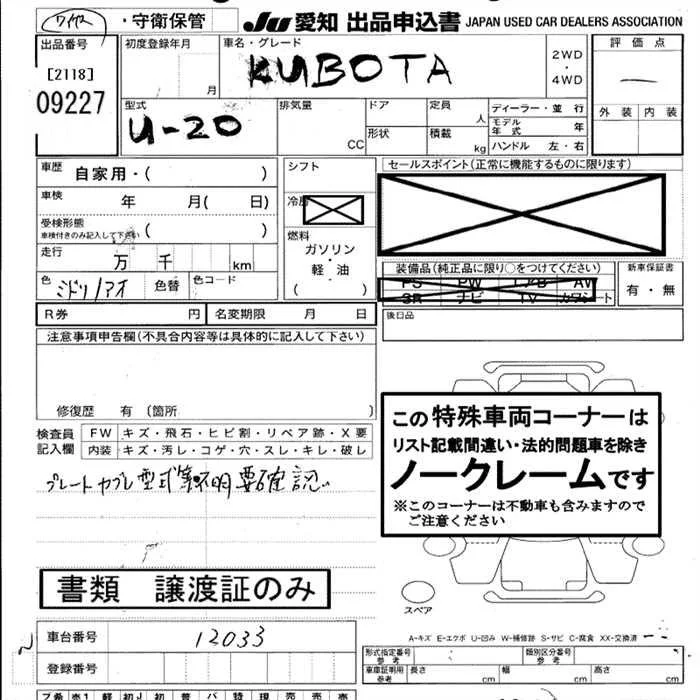 ワイヤ ・守衛保管 JU 愛知 出品申込書 JAPAN USED CAR DEALERS ASSOCIATION
出品番号 初度登録年月 車名・グレード 評価点
[2118] 月 KUBOTA 2WD ・ 4WD
09227 外装 内装
型式 排気量 ドア 定員 ディーラー・並行
U-20 人 モデル年式 年
CC 形状 積載 kg ハンドル 左・右
車歴 自家用・( ) シフト セールスポイント(正常に機能するものに限ります)
車検 年 月( 日) 冷房
受検形態 車検付きのみ記入して下さい ( ) 燃料
走行 万 千 km ガソリン・軽・油 ( )
装備品(純正品に限り○をつけてください) 新車保証書
PS PW エアB AW 有・無
SR ナビ TV カワシート
色 ミドリ/アオ 色替 色コード
後日品
R券 円 名変期限 月 日
注意事項申告欄(不具合内容等は具体的に記入して下さい)
修復歴 有 (箇所 )
検査員記入欄 FW キズ・飛石・ヒビ割・リペア跡・X要
内装 キズ・汚レ・コゲ・穴・スレ・キレ・破レ
プレートカブレ型式等不明要確認
この特殊車両コーナーは
リスト記載間違い・法的問題車を除き
ノークレームです
※このコーナーは不動車も含みますので
ご注意ください
書類 譲渡証のみ
スペア
A-キズ E-エクボ U-凹み W-補修跡 S-サビ C-腐食 XX-交換済
車台番号 12033
登録番号
形式指定番号 参考 類別区分番号 参考
車庫証明用 参考 長さ cm 幅 cm 高さ cm